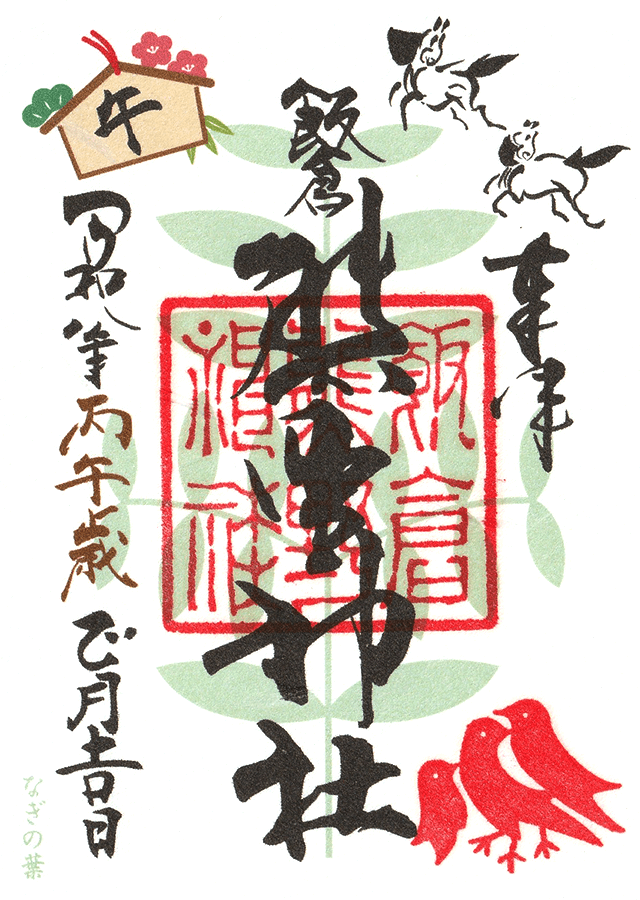 奉拝
飯倉
熊野神社
飯倉
熊野
神社
午
令和八年丙午歳正月吉日
なぎの葉